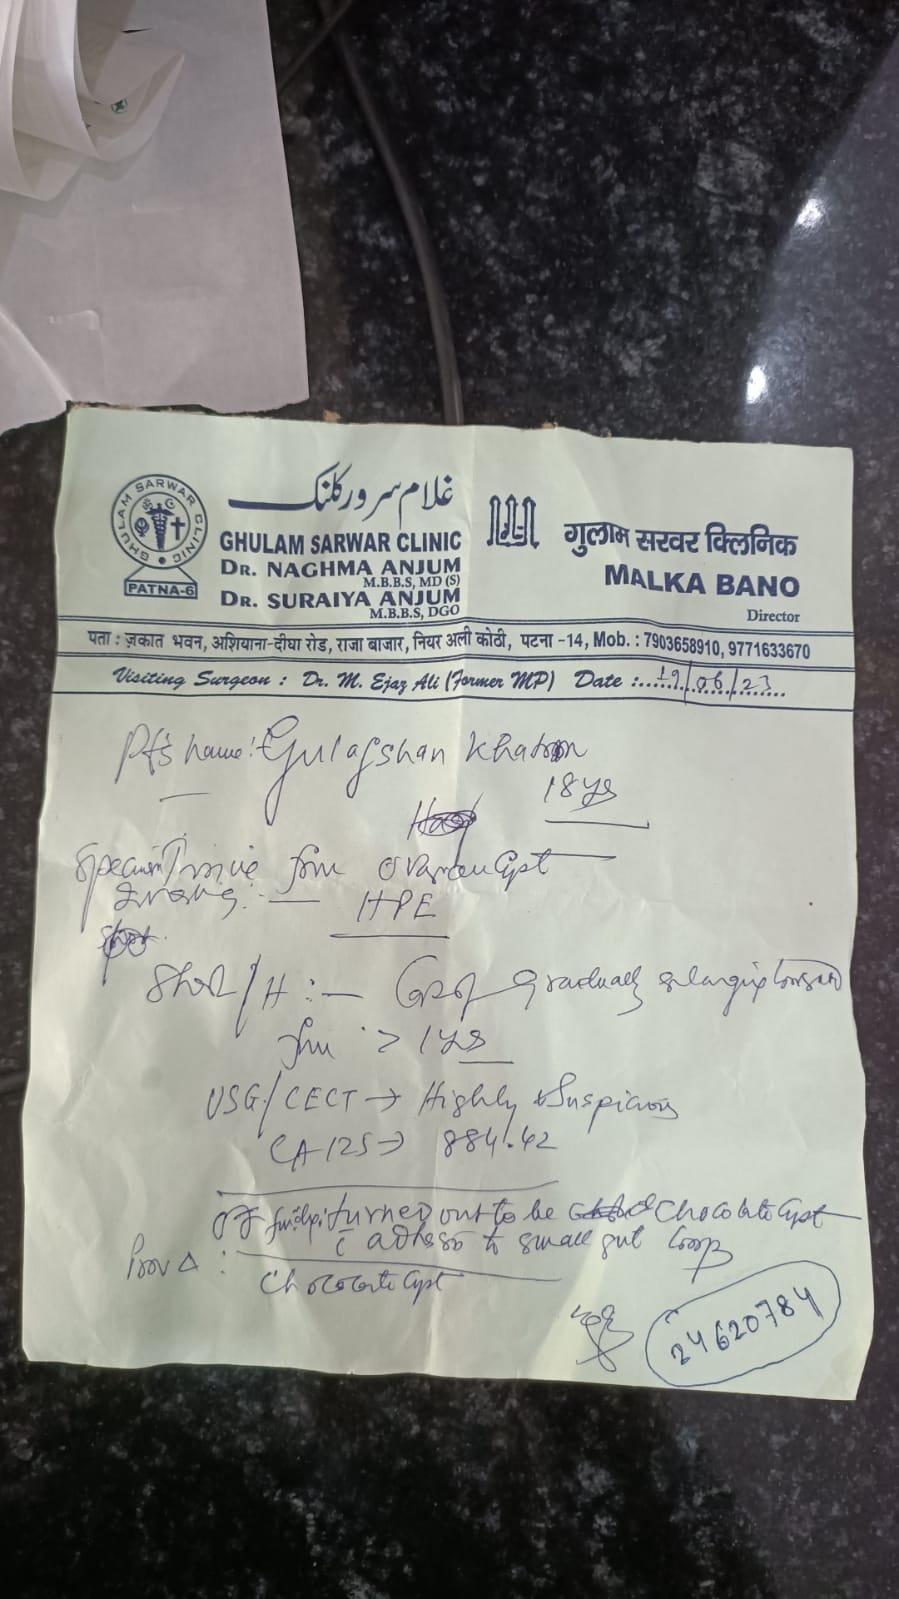 غلام سرور کلنک
GHULAM SARWAR CLINIC
PATNA-6
GHULAM SARWAR CLINIC
DR. NAGHMA ANJUM
M.B.B.S, MD (S)
DR. SURAIYA ANJUM
M.B.B.S, DGO
गुलाम सरवर क्लिनिक
MALKA BANO
Director
पता : ज़कात भवन, अशियाना-दीघा रोड, राजा बाजार, नियर अली कोठी, पटना -14, Mob. : 7903658910, 9771633670
Visiting Surgeon : Dr. M. Ejaz Ali (Former MP) Date :.....19/06/23.....
Pt's name:- Gulafshan Khatoon
18 ys
Specimen Ovarian Cyst
HPE
Short/H :- C/o Gradually enlarging
> 1 ys
USG/CECT → Highly Suspicious
CA 125 → 884.42
OT finding: turned out to be Chocolate Cyst
c̄ adhesion to small gut loop
Prov Δ : Chocolate Cyst
24620784